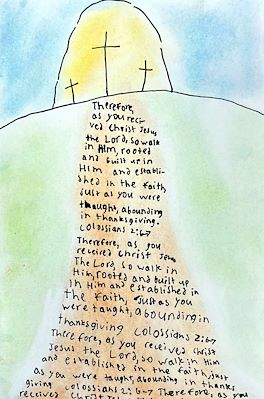 Therefore,
as you reci-
ved Christ Jesus
the Lord, so walk
in Him, rooted
and built up in
Him and establi-
shed in the faith,
just as you were
thought, abounding
in thanksgiving.
Colossians 2:6-7
Therefore, as you
received Christ Jesus
The Lord, so walk in
Him, rooted and built up
in Him and established in
the faith, just as you
were taught, abounding in
thanksgiving Colossians 2:6-7
Therefore, as you received Christ
Jesus the Lord, so walk in Him
and established in the faith, just
as you were taught, abounding in thanks
giving Colossians 2:6-7 Therefore, as you
received Christ